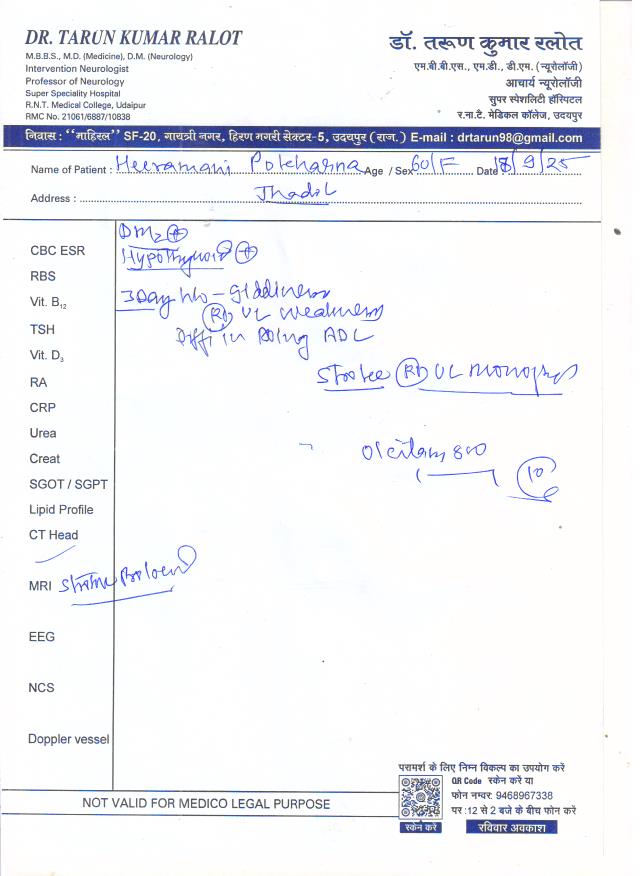 DR. TARUN KUMAR RALOT
M.B.B.S., M.D. (Medicine), D.M. (Neurology)
Intervention Neurologist
Professor of Neurology
Super Speciality Hospital
R.N.T. Medical College, Udaipur
RMC No. 21061/6887/10838
डॉ. तरूण कुमार रलोत
एम.बी.बी.एस., एम.डी., डी.एम. (न्यूरोलॉजी)
आचार्य न्यूरोलॉजी
सुपर स्पेशलिटी हॉस्पिटल
र.ना.टै. मेडिकल कॉलेज, उदयपुर
निवास : "माहिरल" SF-20, गायत्री नगर, हिरण मगरी सेक्टर-5, उदयपुर (राज.) E-mail : drtarun98@gmail.com
Name of Patient : Heeramani Pokharna Age / Sex 60/F Date 18/9/25
Address : Jhadol
DM2 +
Hypothyroid +
3 Day h/o - giddiness
Rt UL weakness
diffi in doing ADL
Stroke Rt UL
800
10
CBC ESR
RBS
Vit. B12
TSH
Vit. D3
RA
CRP
Urea
Creat
SGOT / SGPT
Lipid Profile
CT Head
MRI
EEG
NCS
Doppler vessel
NOT VALID FOR MEDICO LEGAL PURPOSE
परामर्श के लिए निम्न विकल्प का उपयोग करें
QR Code स्केन करें या
फोन नम्बर: 9468967338
पर :12 से 2 बजे के बीच फोन करें
स्केन करें
रविवार अवकाश